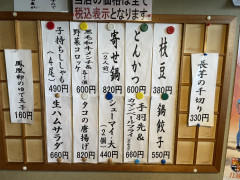 当店の価格は全て
税込表示となります。
長芋の千切り
330円
枝豆
380円
鍋餃子
550円
とんかつ
820円
手羽先&
660円
寄せ鍋
(2人前)
820円
シューマイ
(2個)
440円
黒毛和牛メンチ&
野菜コロッケ
600円
タコの唐揚げ
820円
子持ちししゃも
(4尾)
490円
生ハムサラダ
660円
鳳凰卵のゆで玉子
160円